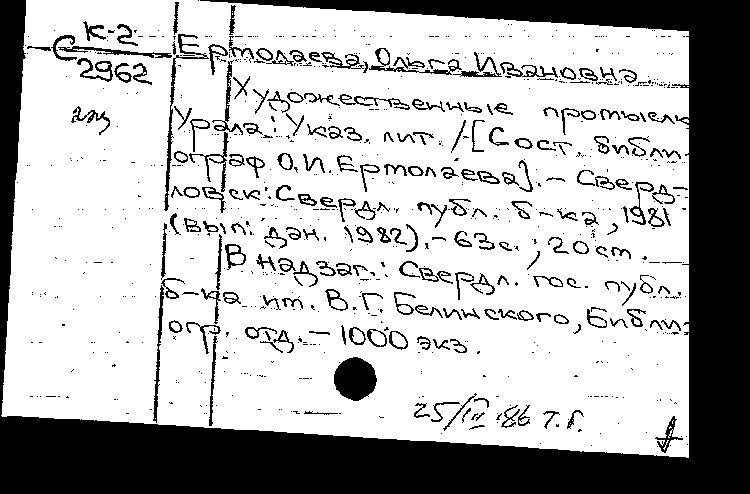 К-2
С 2962
2 экз
Ермолаева, Ольга Ивановна.
Художественные промыслы
Урала: Указ. лит. /[Сост. библи-
ограф О.И. Ермолаева]. – Сверд-
ловск: Свердл. публ. б-ка, 1981
(вып. дан. 1982). – 63с. ; 20 см.
В надзаг.: Свердл. гос. публ.
б-ка им. В.Г. Белинского, Библи-
огр. отд. – 1000 экз.
25/III 86 Т.Г.